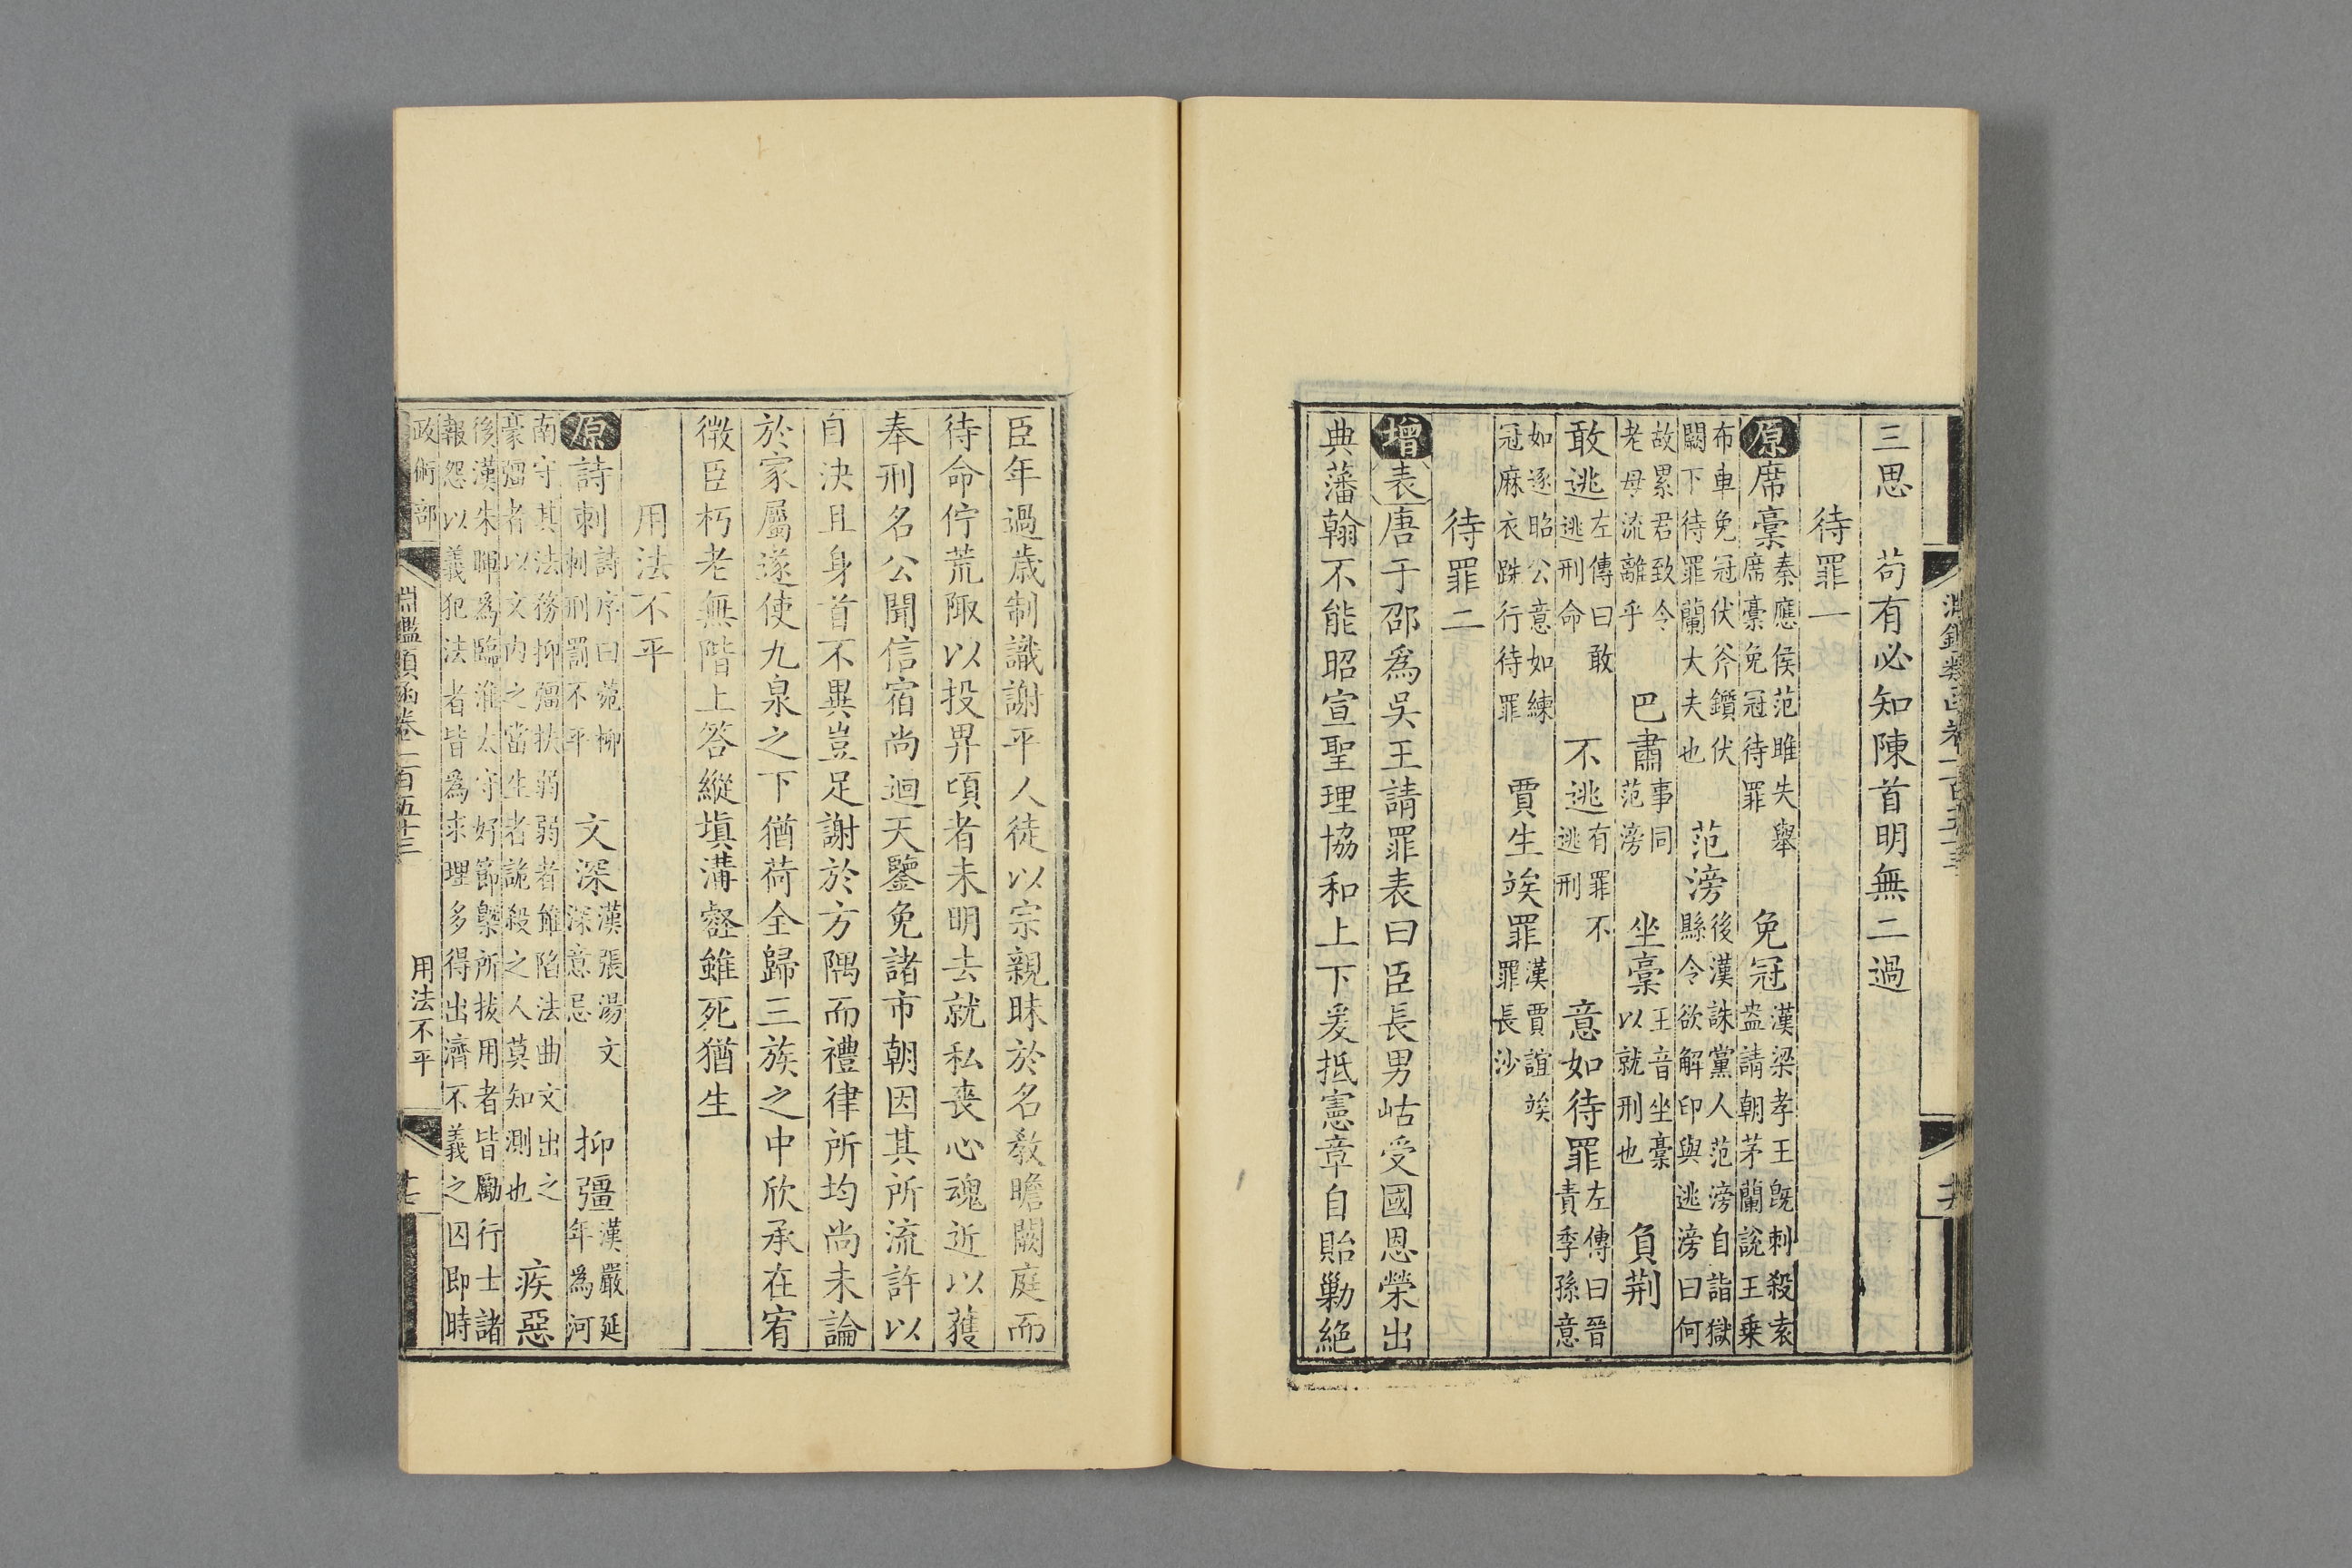 三思　苟有必知陳首明無二過
待罪一
原席藁秦應侯范雎失舉席藁免冠待罪　免冠漢梁孝王旣刺殺袁盎請朝茅蘭說王乗
布車免冠伏斧鑕伏闕下待罪蘭大夫也　范滂後漢誅黨人范滂自詣獄縣令欲解印與逃滂曰何
故累君致令老母流離乎　巴肅事同范滂　坐藁王音坐藁以就刑也　負荆
敢逃左傳曰敢逃刑命　不逃有罪不逃刑　意如待罪左傳曰晉責季孫意
如逐昭公意如練冠麻衣跣行待罪　賈生竢罪漢賈誼竢罪長沙
待罪二
增表唐于邵爲吳王請罪表曰臣長男岵受國恩榮出
典藩翰不能昭宣聖理協和上下爰抵憲章自貽勦絶
臣年過歲制識謝平人徒以宗親昧於名教瞻闕庭而
待命佇荒陬以投畀頃者未明去就私喪心魂近以獲
奉刑名公聞信宿尚迴天鑒免諸市朝因其所流許以
自決且身首不異豈足謝於方隅而禮律所均尚未論
於家屬遂使九泉之下猶荷全歸三族之中欣承在宥
微臣朽老無階上答縱塡溝壑雖死猶生
用法不平
原詩刺詩序曰菀柳刺刑罰不平　文深漢張湯文深意忌　抑彊漢嚴延年爲河
南守其法務抑彊扶弱弱者雖陷法曲文出之豪彊者以文内之當生者詭殺之人莫知測也　疾惡
後漢朱暉爲臨淮太守好節槩所拔用者皆勵行士諸報怨以義犯法者皆爲求理多得出濟不義之囚即時
政術部　淵鑑類函卷一百五十三　用法不平